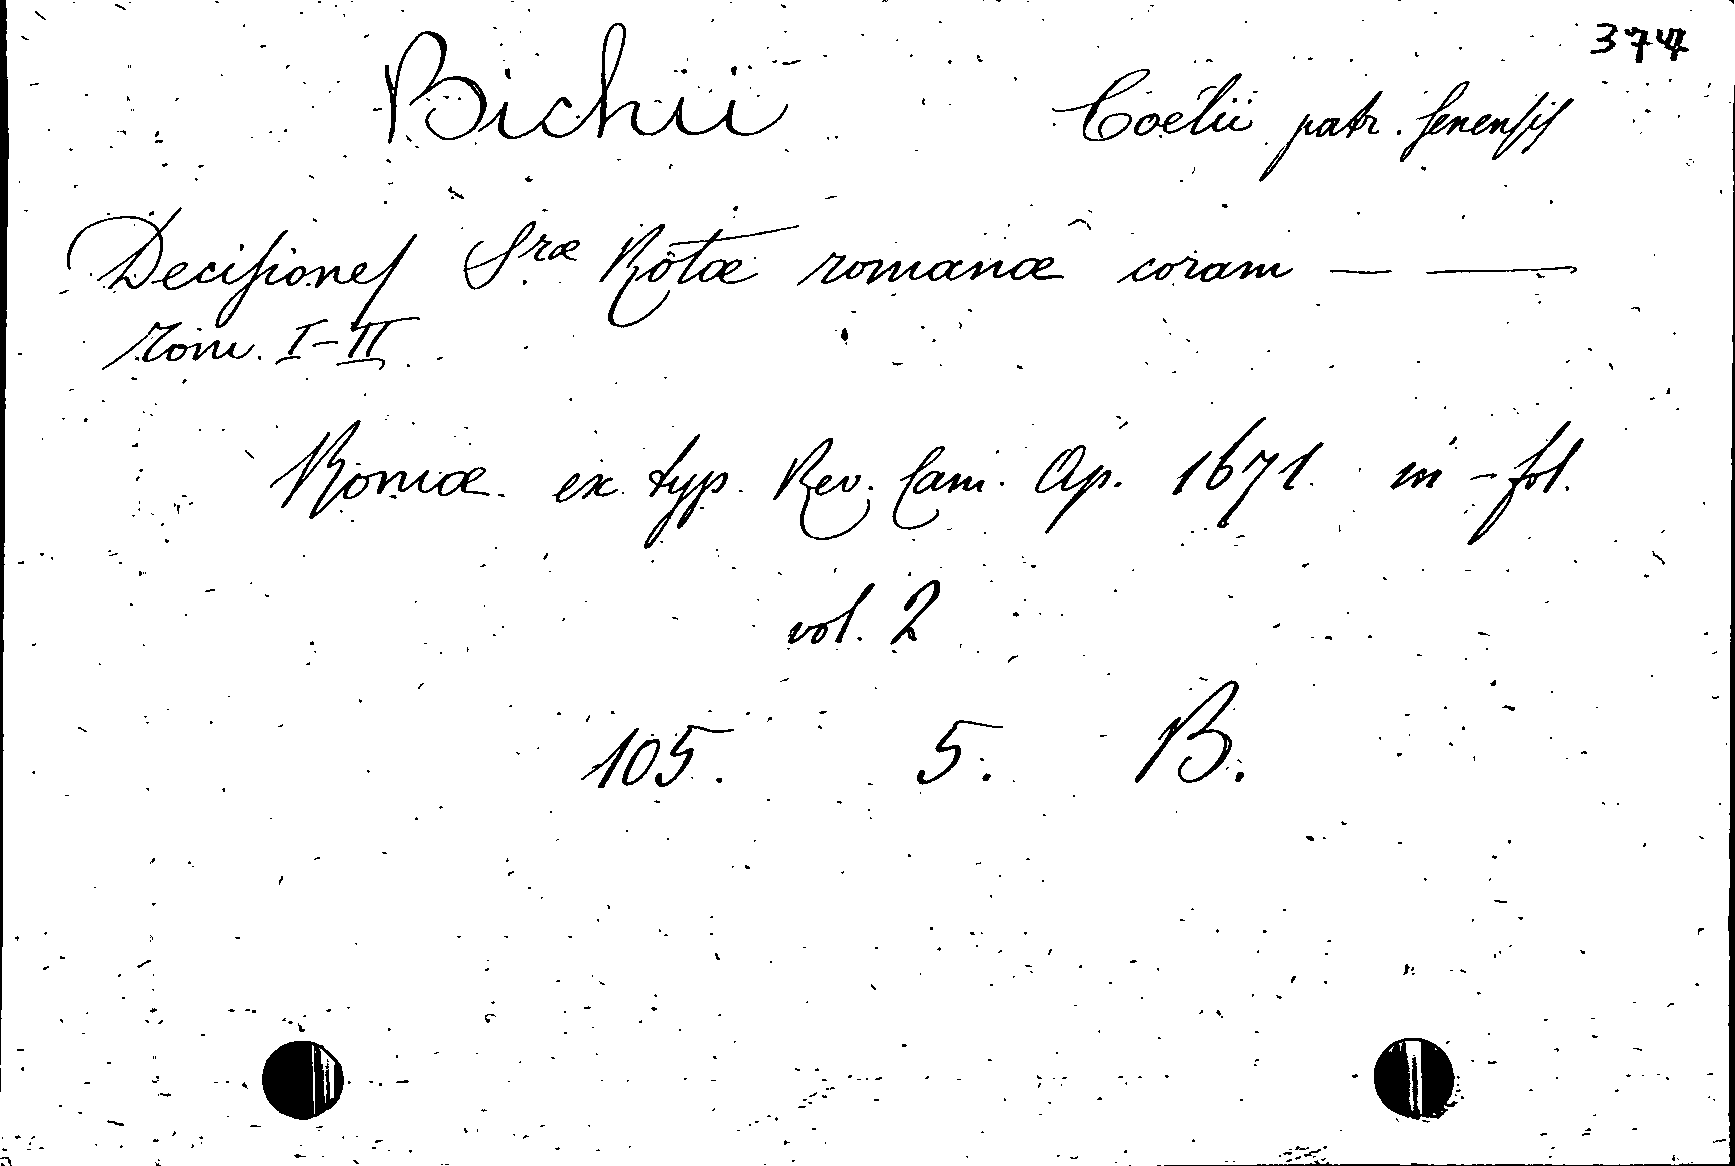 374
Bichii Coelii patr. senensis
Decisiones Sræ Rotæ romanæ coram — —
Tom. I-II
Romæ. ex typ. Rev. Cam. Ap. 1671. in-fol.
vol. 2
105. 5. B.